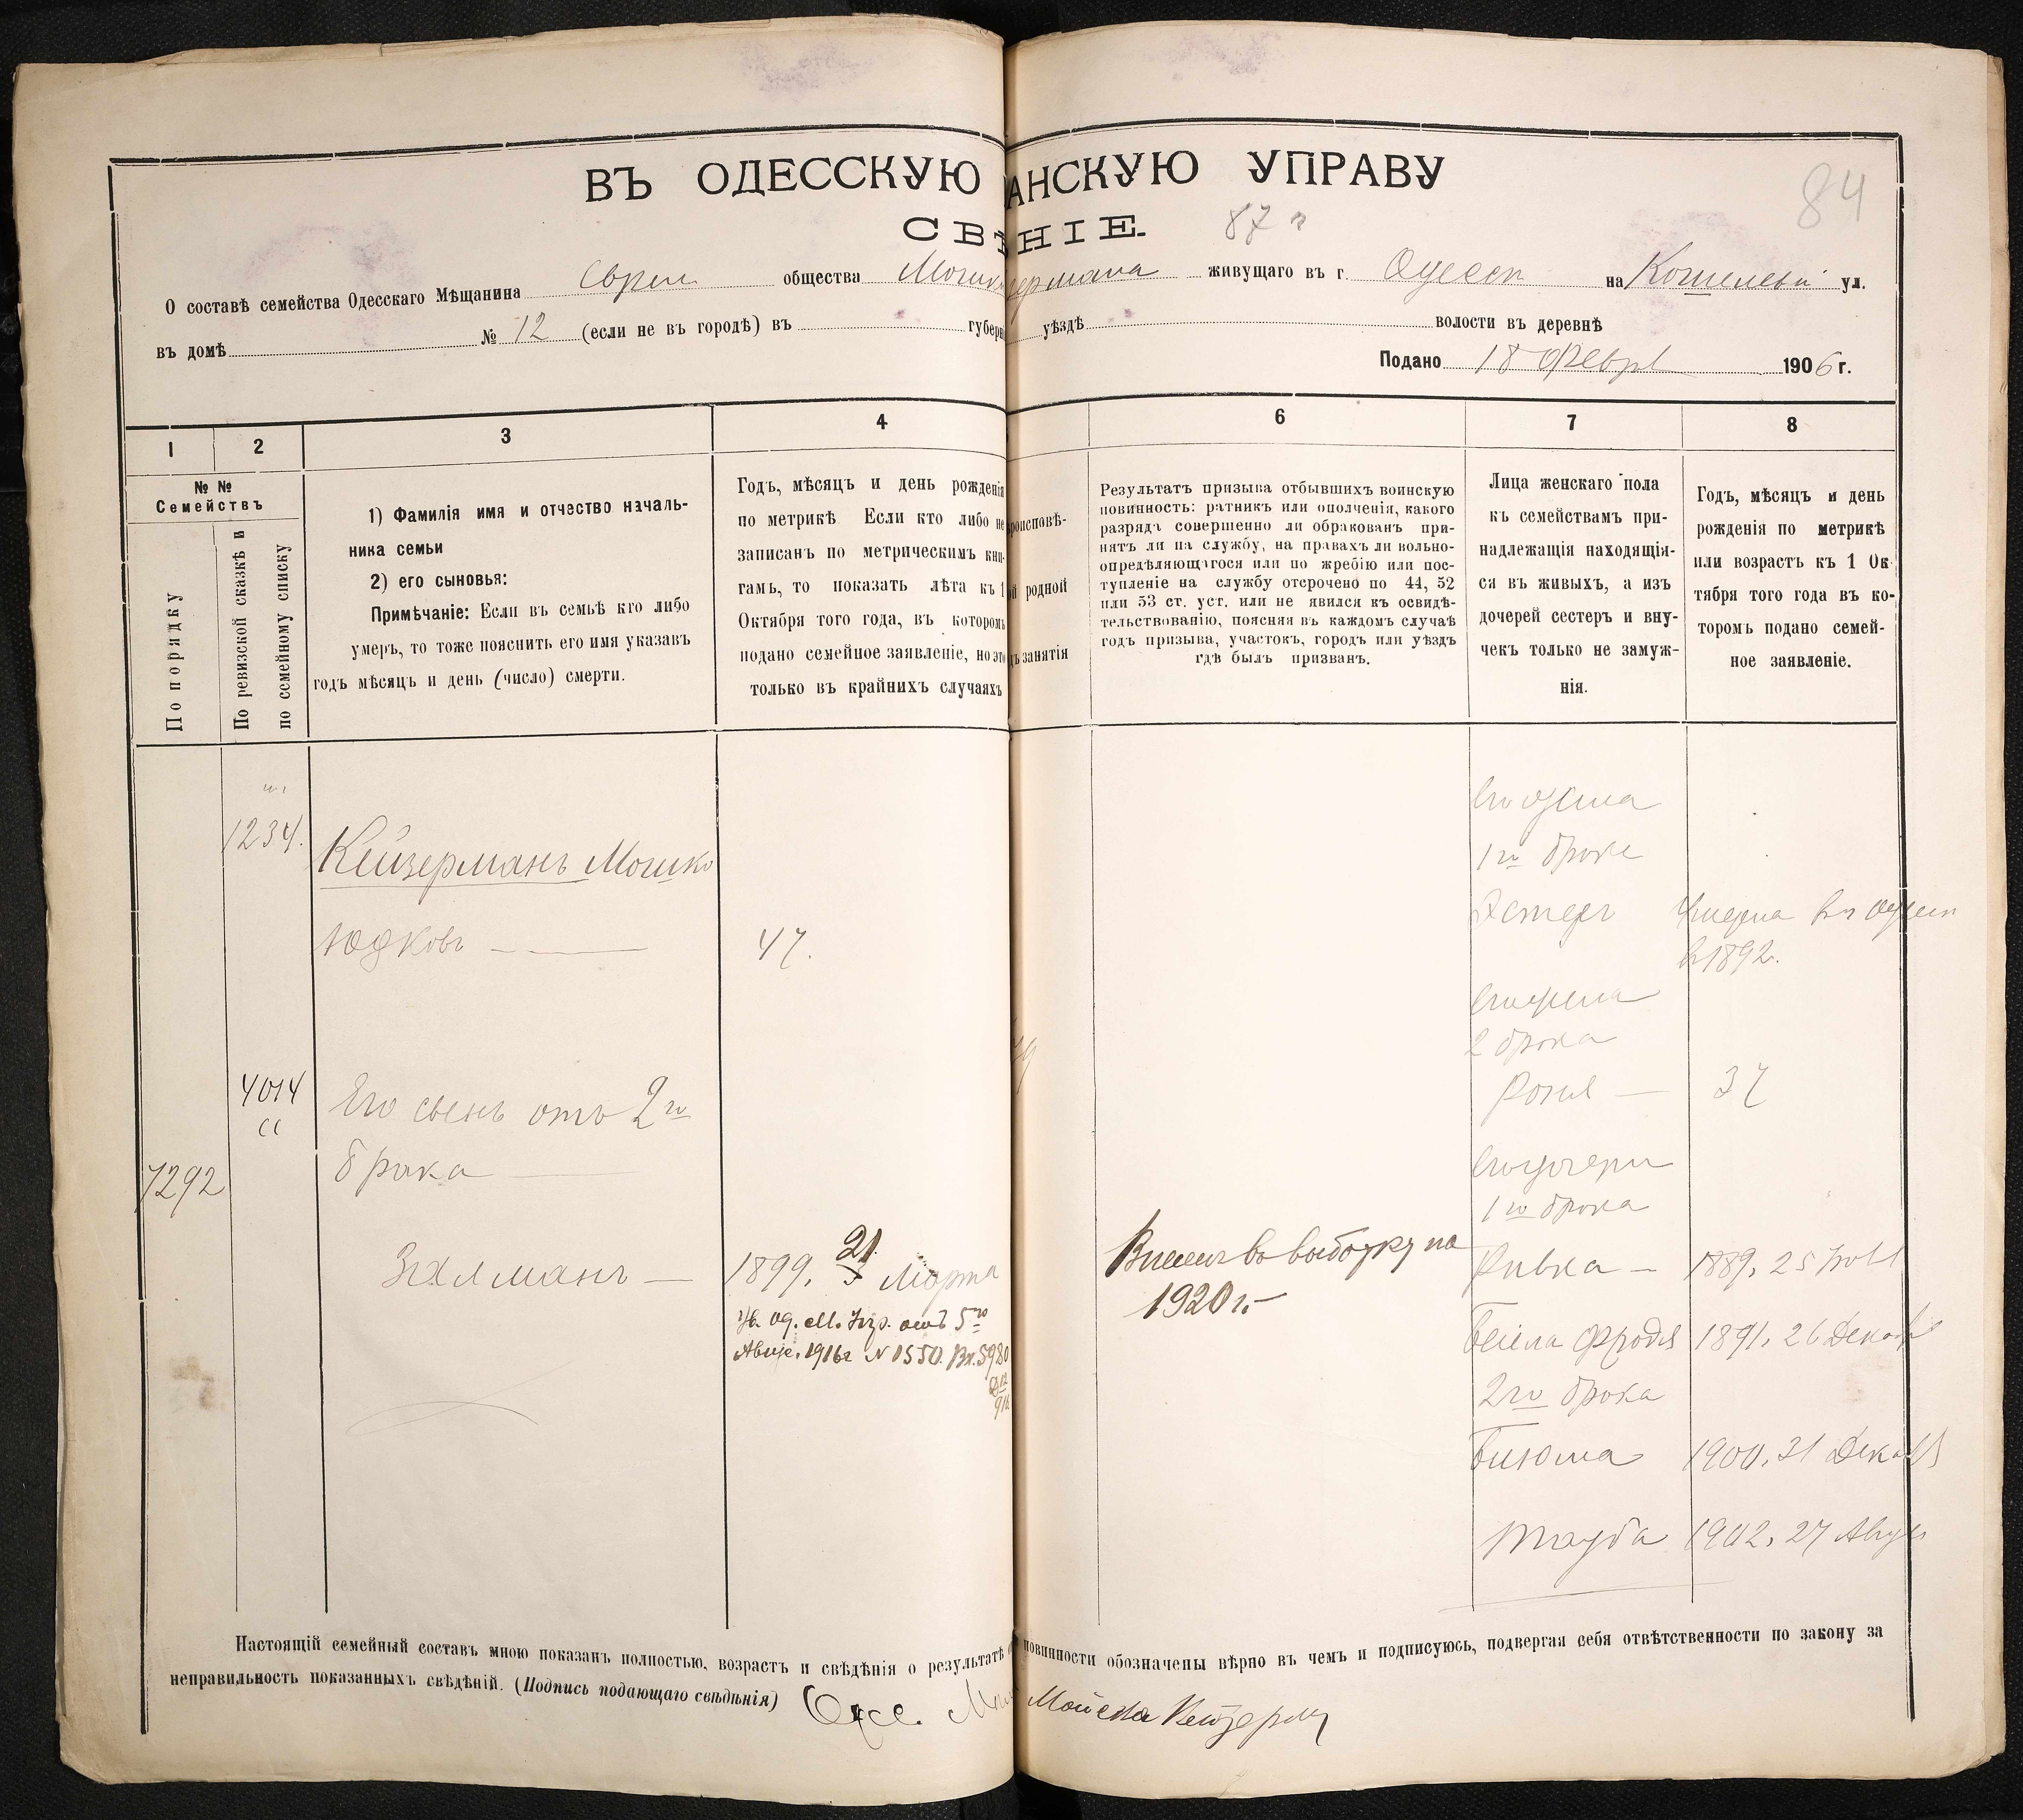 84
ВЪ ОДЕССКУЮ АНСКУЮ УПРАВУ
СВѢ НІЕ.
87
О составѣ семейства Одесскаго Мѣщанина Еврея общества Мошк ермана живущаго въ г. Одесси на ул.
въ домѣ № 12 (если не въ городѣ) въ губерн уѣздѣ волости въ деревнѣ
Подано 18 Февр 1906 г.
1 2 3 4 6 7 8
№ № Семействъ
По порядку
По ревизской сказкѣ и по семейному списку
1) Фамилія имя и отчество началь-
ника семьи
2) его сыновья:
Примѣчаніе: Если въ семьѣ кто либо
умеръ, то тоже пояснить его имя указавъ
годъ мѣсяцъ и день (число) смерти.
Годъ, мѣсяцъ и день рожденія
по метрикѣ Если кто либо не
записанъ по метрическимъ кни-
гамъ, то показать лѣта къ 1
Октября того года, въ которомъ
подано семейное заявленіе, но это
только въ крайнихъ случаяхъ
роисповѣ-
й родной
дъ занятія
Результатъ призыва отбывшихъ воинскую
повинность: ратникъ или ополченія, какого
разряда совершенно ли обракованъ при-
нятъ ли на службу, на правахъ ли вольно-
опредѣляющагося или по жребію или пос-
тупленіе на службу отсрочено по 44, 52
или 53 ст. уст. или не явился къ освидѣ-
тельствованію, поясняя въ каждомъ случаѣ
годъ призыва, участокъ, городъ или уѣздъ
гдѣ былъ призванъ.
Лица женскаго пола
къ семействамъ при-
надлежащія находящія-
ся въ живыхъ, а изъ
дочерей сестеръ и вну-
чекъ только не замуж-
нія.
Годъ, мѣсяцъ и день
рожденія по метрикѣ
или возрастъ къ 1 Ок-
тября того года въ ко-
торомъ подано семей-
ное заявленіе.
1234.
Кейзерманъ Мошко
Юдковъ
47.
4014
Его сынъ отъ 2го
брака
7292
Зельманъ
1899, 21 Марта
Ув. Од. М. Упр. отъ 5го
Авг. 1916г № 1550. Вх. 5980
Внесенъ въ выборку на
1920 г.
Его жена
1го брака
Эстеръ Умерла въ Одессе
въ 1892.
Его жена
2 брака
Рогля 37
Его дочери
1го брака
Ривка 1889, 25
Бейла Фродя 1891, 26 Декаб
2го брака
Бисюма 1900, 31 Декаб
Тауба 1902, 27 Авгус
Настоящій семейный составъ мною показанъ полностью, возрастъ и свѣдѣнія о результатѣ повинности обозначены вѣрно въ чемъ и подписуюсь, подвергая себя отвѣтственности по закону за
неправильность показанныхъ свѣдѣній. (Подпись подающаго свѣдѣнія) Одес. Мойсей Кейзерман